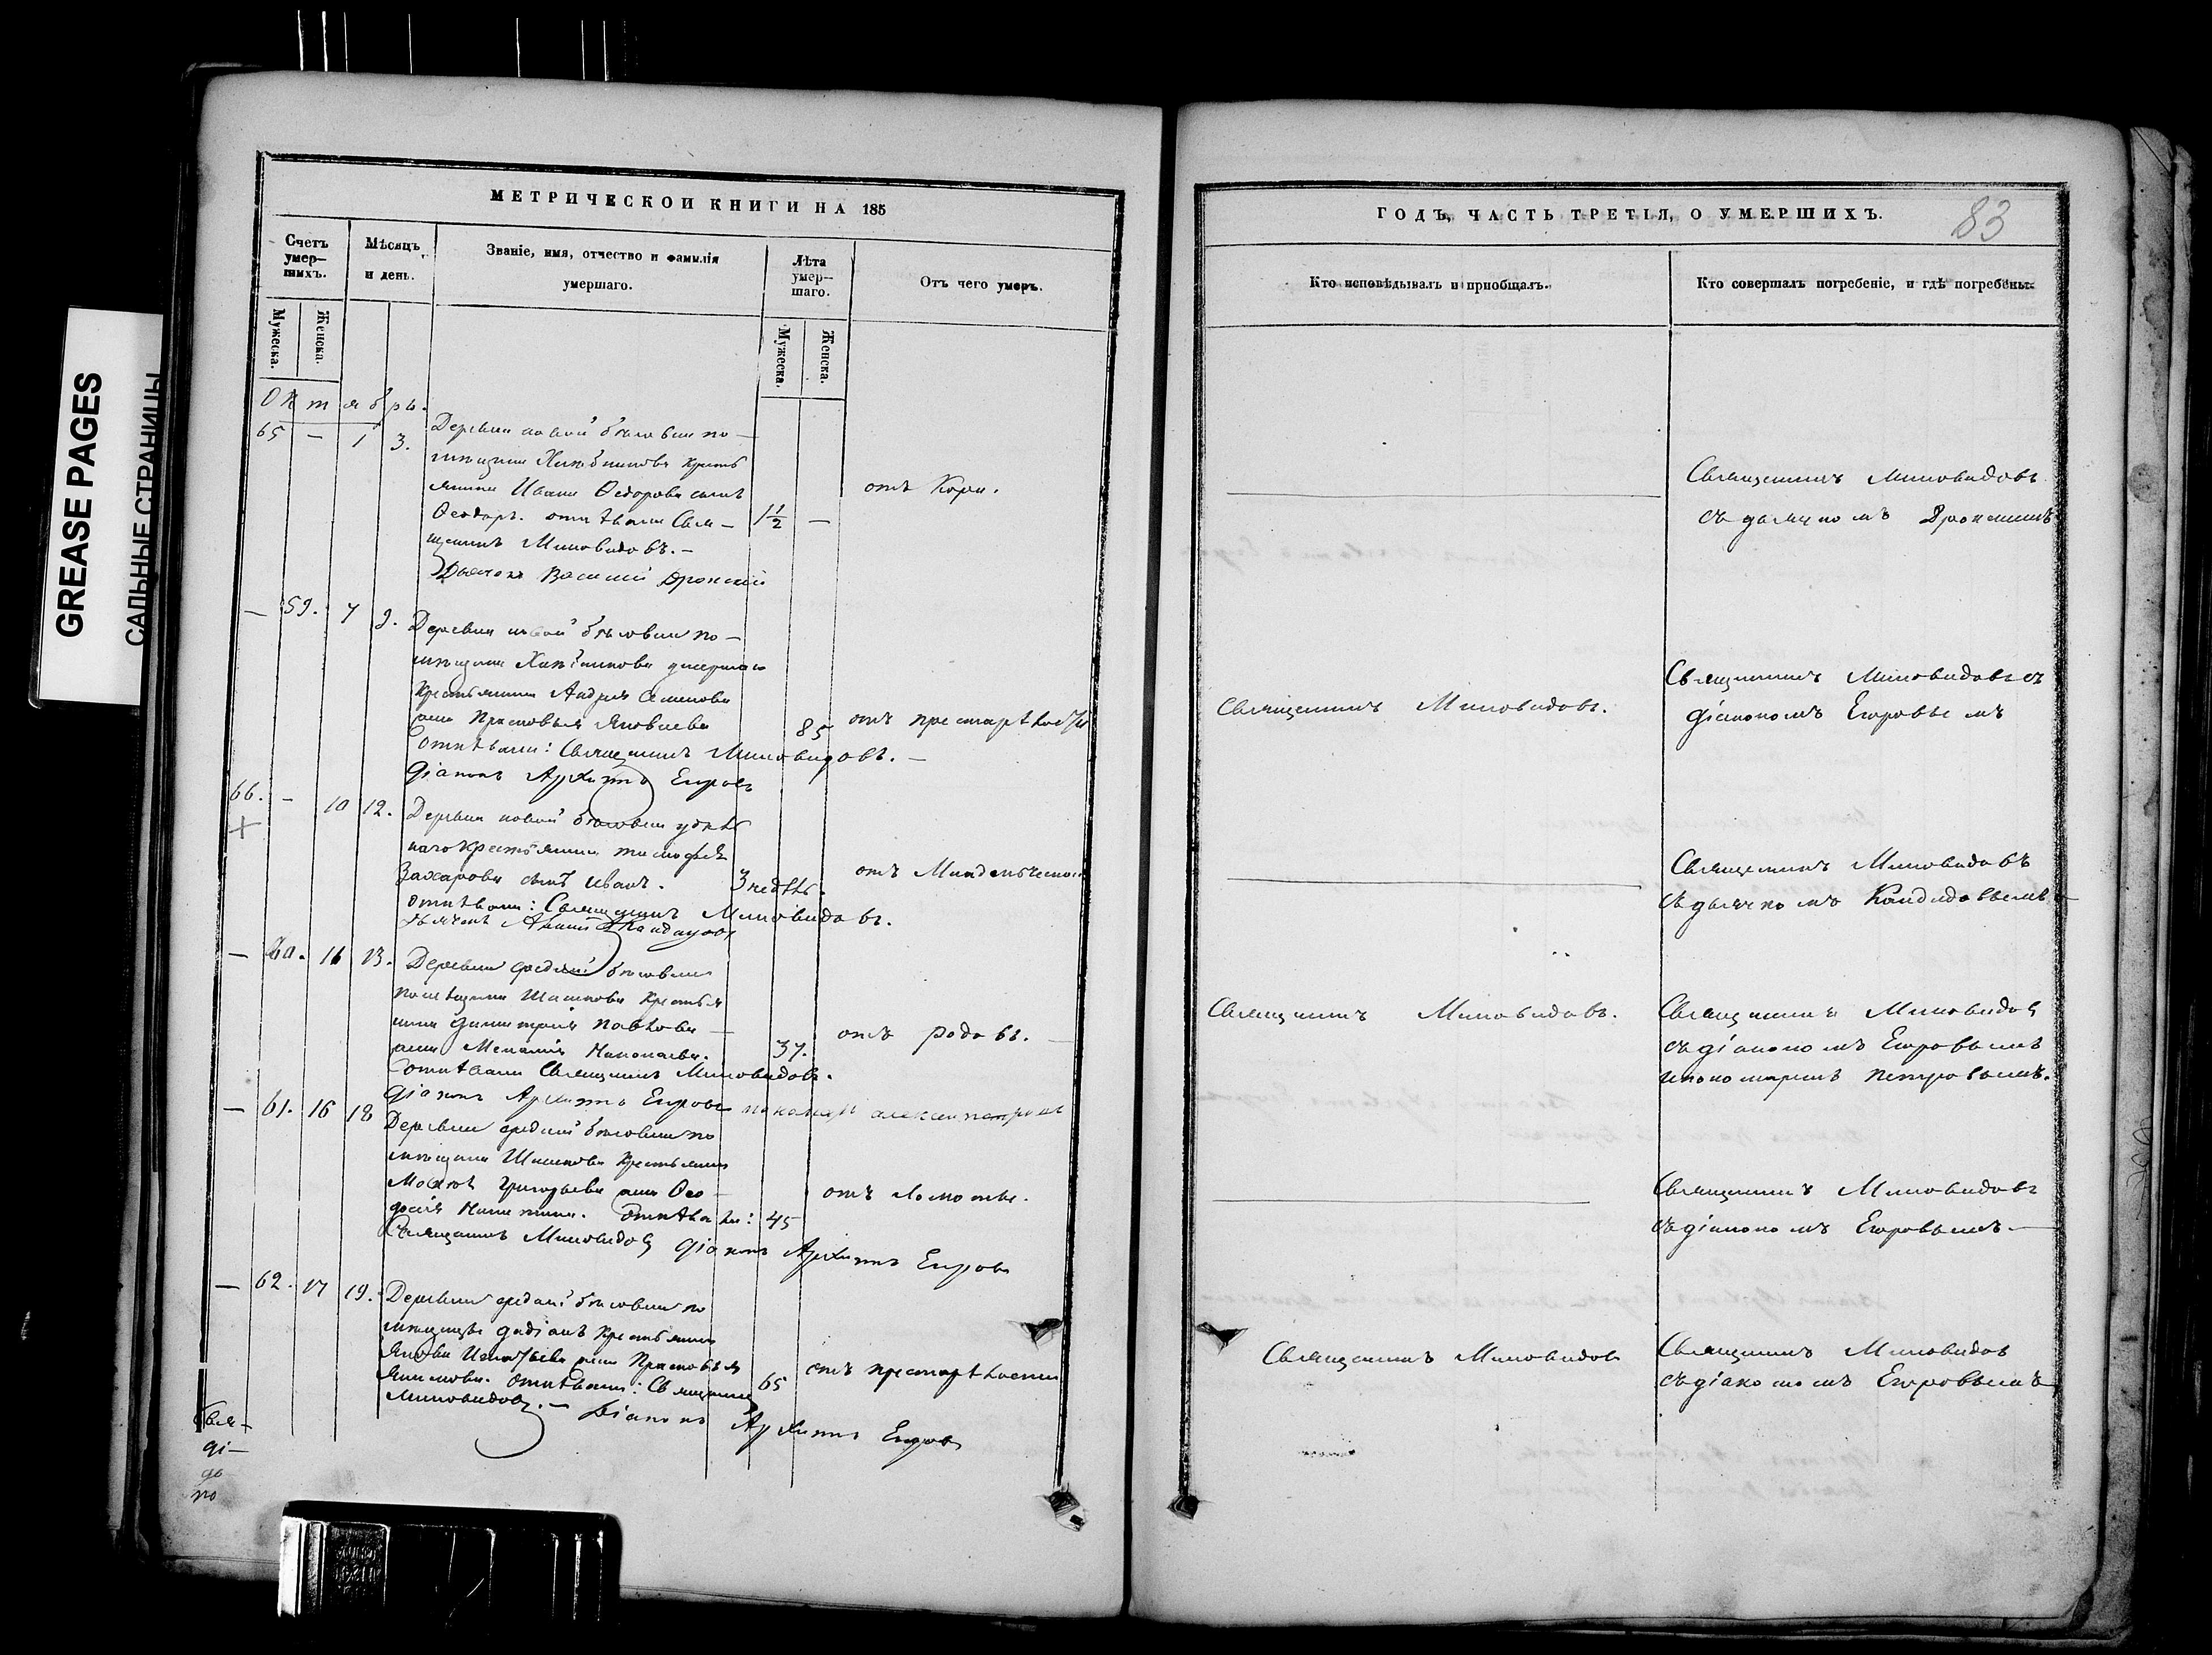 GREASE PAGES
САЛЬНЫЕ СТРАНИЦЫ
МЕТРИЧЕСКОЙ КНИГИ НА 185
Счетъ умер-
шихъ.
Мѣсяцъ
и день.
Званіе, имя, отчество и фамилія
умершаго.
Лѣта
умер-
шаго.
Отъ чего умеръ.
Мужеска.
Женска.
Мужеска.
Женска.
Октябрь.
65 — 1 3.
Деревни новой
Крестъ
янина Ивана Ѳедорова сынъ
Ѳеодоръ. отпѣвали Свя-
щенникъ Миловидовъ. —
Дьячокъ Василий Дронский
1½ —
отъ Кори.
— 59. 7 9.
Деревни новой
умершаго
Крестьянина Андрея Семенова
жена Прасковья Яковлева
85
отъ престарѣлости
отпѣвали: Священникъ Миловидовъ. —
діаконъ Архипъ Егоровъ
66. — 10 12.
Деревни новой удѣль
наго крестьянина Тимофея
Захарова сынъ Иванъ.
3 недѣль.
отъ Младенческой
отпѣвали: Священникъ Миловидовъ.
дьячокъ Кандидовъ
— 60. 11 13.
Деревни средней
помѣщика Шишкова Крестья
нина Димитрія Павлова
жена Меланія Николаева.
37.
отъ родовъ.
отпѣвали Священникъ Миловидовъ.
діаконъ Архипъ Егоровъ пономарь алексей петровъ
— 61. 16 18
Деревни средней по
мѣщика Шишкова Крестьянина
Григорьева жена Ѳео-
досія Никитина. Отпѣвали:
45
отъ ломоты.
Священникъ Миловидовъ діаконъ Архипъ Егоровъ
— 62. 17 19.
Деревни средней по
мѣщицы Крестьянина
Якова Игнатьева жена Прасковья
Якимова. отпѣвали: Священникъ
65
отъ престарѣлости
Миловидовъ. — Діаконъ Архипъ Егоровъ
Свя-
ді-
дь
по
ГОДЪ, ЧАСТЬ ТРЕТІЯ, О УМЕРШИХЪ.
83
Кто исповѣдывалъ и пріобщалъ.
Кто совершалъ погребеніе, и гдѣ погребены.
Священникъ Миловидовъ
съ дьячкомъ Дронскимъ
Священникъ Миловидовъ.
Священникъ Миловидовъ съ
діакономъ Егоровымъ
Священникъ Миловидовъ
съ дьячкомъ Кандидовымъ
Священникъ Миловидовъ.
Священникъ Миловидовъ
съ діакономъ Егоровымъ
и пономаремъ Петровымъ.
Священникъ Миловидовъ
съ діакономъ Егоровымъ —
Священникъ Миловидовъ
Священникъ Миловидовъ
съ діакономъ Егоровымъ